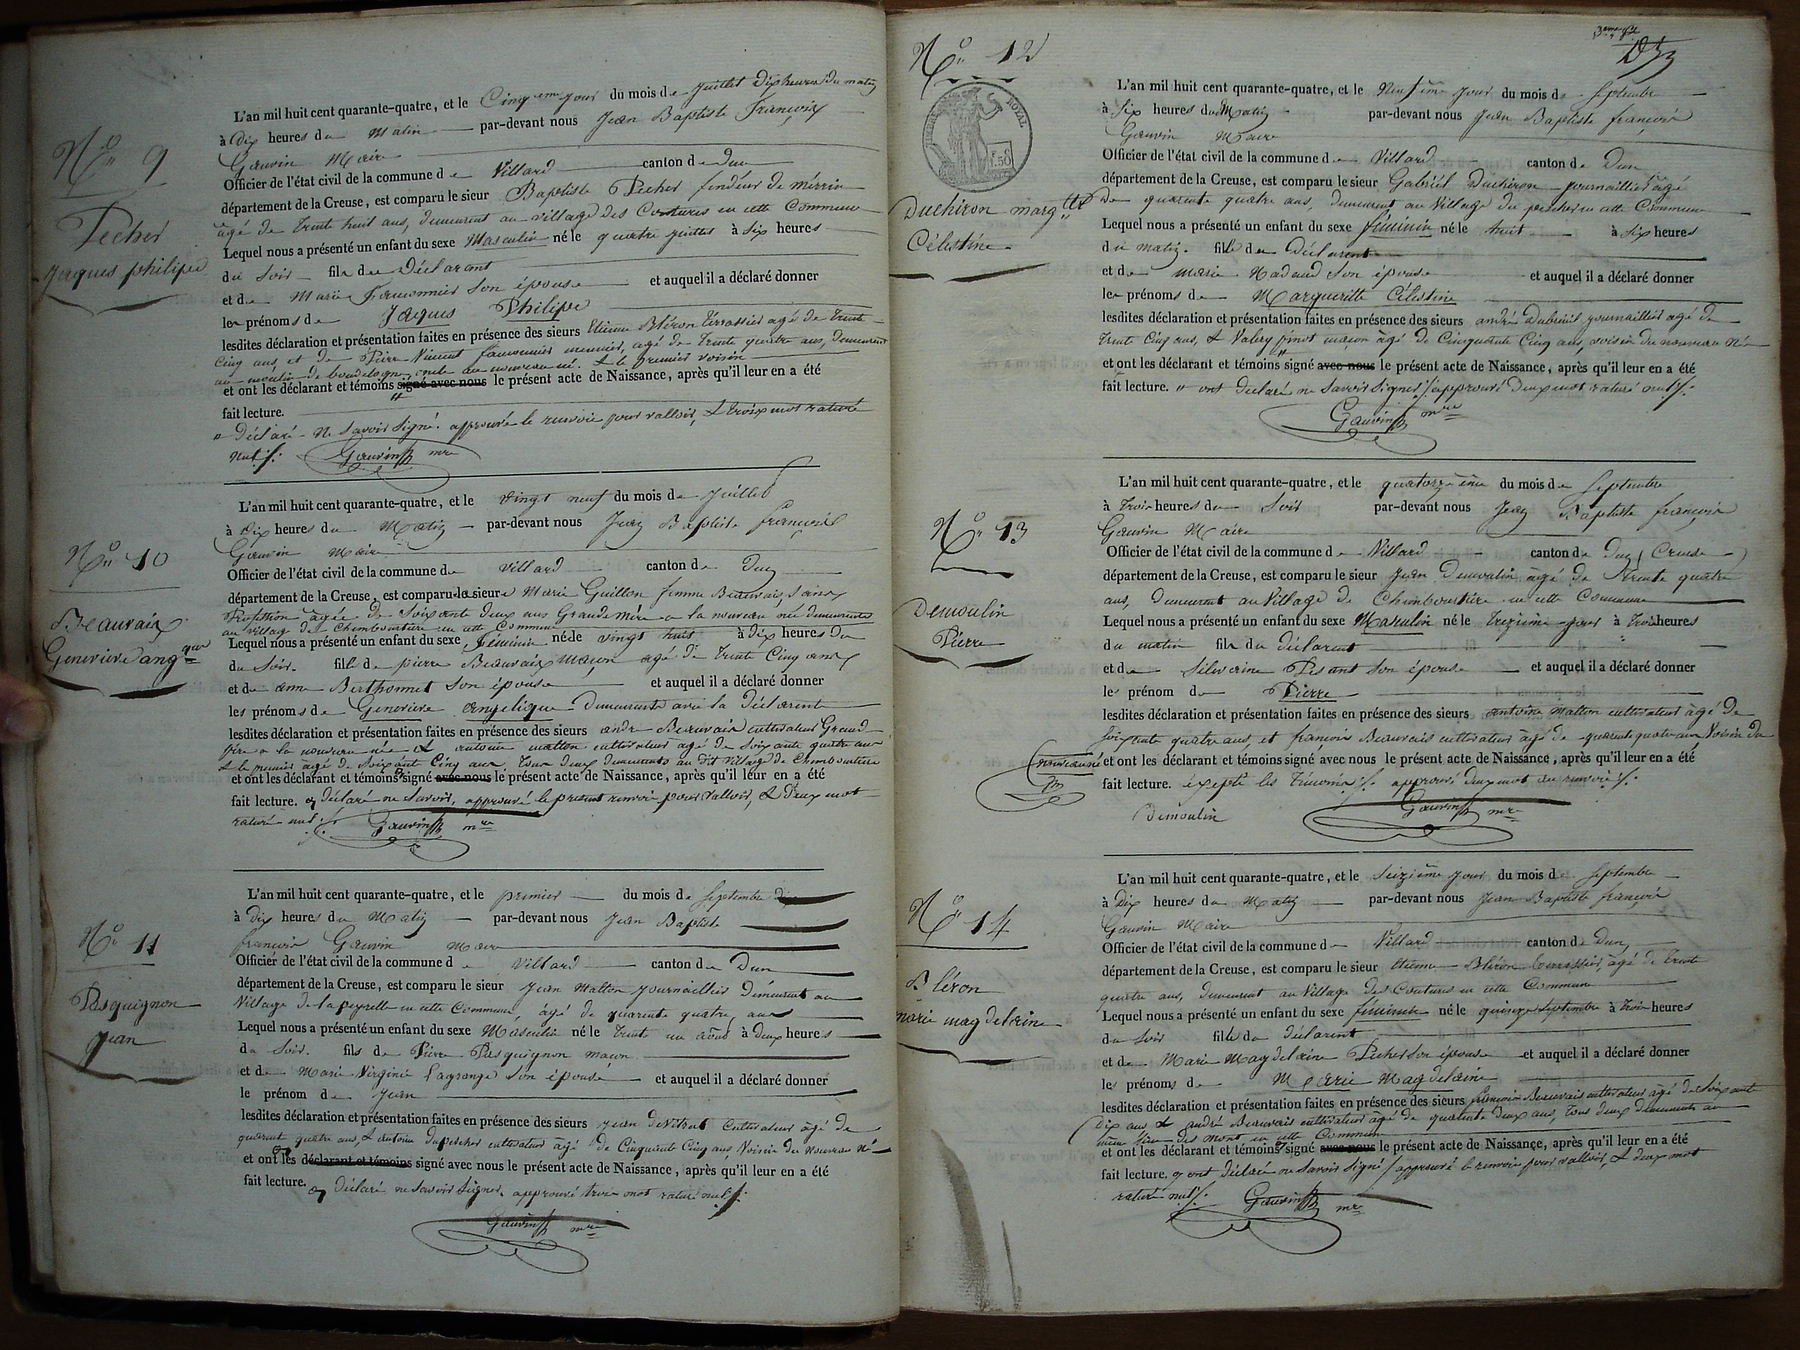 N° 9
Pecher
Jacques philipe
L'an mil huit cent quarante-quatre, et le Cinq eme jour du mois de juillet dix heures du matin
à Dix heures du matin par-devant nous Jean Baptiste François
Gauvin Maire
Officier de l'état civil de la commune de Villard canton de Dun
département de la Creuse, est comparu le sieur Baptiste Pecher fendeur de merrin
âgé de trente huit ans, demeurant au village des Coutures en cette Commune
Lequel nous a présenté un enfant du sexe Masculin né le quatre juillet à Six heures
du Soir fils du Déclarant
et de Marie Fauconnier Son épouse et auquel il a déclaré donner
les prénoms de Jacques Philipe
lesdites déclaration et présentation faites en présence des sieurs Etienne Bléron terrassier agé de trente
Cinq ans, et de Pierre Vincent fauconnier meunier, agé de trente quatre ans, Demeurant
au moulin de du nouveau né. le premier voisin
et ont les déclarant et témoins signé avec nous le présent acte de Naissance, après qu'il leur en a été
fait lecture.
Déclaré ne Savoir Signé. approuvé le renvoie pour valloir, & trois mot raturé
nul
Gauvin mre
N° 10
Beauvais
Genevieve ang que
L'an mil huit cent quarante-quatre, et le vingt neuf du mois de Juillet
à Dix heures du Matin par-devant nous Jean Baptiste françois
Gauvin Maire
Officier de l'état civil de la commune de Villard canton de Dun
département de la Creuse, est comparu le sieur Marie Guillon femme Beauvais, Sans
Profession âgée de Soixante deux ans Grande Mère a la nouveau née demeurante
au village de Chemboutière en cette Commune
Lequel nous a présenté un enfant du sexe Féminin né le vingt huit à Dix heures du
du Soir. fille de pierre Beauvais Maçon agé de Trente Cinq ans
et de anne Berthonnet Son épouse et auquel il a déclaré donner
les prénoms de Genevieve Angelique Demeurante avec la Déclarente
lesdites déclaration et présentation faites en présence des sieurs andré Beauvais cultivateur Grand
Père a la nouveau née et antoine matton cultivateur agé de Soixante quatre ans
& le premier agé de Soixante Cinq ans, tous deux demeurants au dit Village de Chemboutière
et ont les déclarant et témoins signé avec nous le présent acte de Naissance, après qu'il leur en a été
fait lecture. déclaré ne Savoir, approuvé le présent renvoie pour valloir, & Deux mot
raturé nul
Gauvin mre
N° 11
Pasquignon
Jean
L'an mil huit cent quarante-quatre, et le premier du mois de Septembre dix
à Dix heures du Matin par-devant nous Jean Baptiste
françois Gauvin Maire
Officier de l'état civil de la commune de Villard canton de Dun
département de la Creuse, est comparu le sieur Jean Matton Journaillier Demeurant au
Village de la peyrelle en cette Commune, âgé de quarente quatre ans
Lequel nous a présenté un enfant du sexe Masculin né le trente un août à Deux heures
du Soir. fils de Pierre Pasquignon maçon
et de Marie Virginie Lagrange Son épouse et auquel il a déclaré donner
le prénom de Jean
lesdites déclaration et présentation faites en présence des sieurs Jean Cultivateur âgé de
quarente quatre ans, & antoine Dupescher cultivateur âgé de Cinquante Cinq ans Voisin du Nouveau né
et ont les déclarant et témoins signé avec nous le présent acte de Naissance, après qu'il leur en a été
fait lecture. déclaré ne Savoir Signer. approuvé trois mot raturé nul
Gauvin mre
3eme
N° 12
TIMBRE ROYAL
1 F. 50
Duchiron marg tte
Célestine
L'an mil huit cent quarante-quatre, et le Neufième Jour du mois de Septembre
à Six heures du Matin par-devant nous Jean Baptiste françois
Gauvin Maire
Officier de l'état civil de la commune de Villard canton de Dun
département de la Creuse, est comparu le sieur Gabriël Duchiron journaillier agé
De quarente quatre ans, demeurant au Village du pescher en cette Commune
Lequel nous a présenté un enfant du sexe féminin né le huit à Six heures
du matin. fille du Déclarent
et de Marie Nadaud Son épouse et auquel il a déclaré donner
les prénoms de Marguerite Célestine
lesdites déclaration et présentation faites en présence des sieurs andré Dubreuil journaillier agé de
trente Cinq ans, & Valery pinot maçon agé de Cinquante Cinq ans, voisin du nouveau né
et ont les déclarant et témoins signé avec nous le présent acte de Naissance, après qu'il leur en a été
fait lecture. ont déclaré ne Savoir Signer approuvé Deux mot raturé nul
Gauvin mre
N° 13
Demoulin
Pierre
L'an mil huit cent quarante-quatre, et le quatorzième du mois de Septembre
à Trois heures du Soir par-devant nous Jean Baptiste françois
Gauvin Maire
Officier de l'état civil de la commune de Villard canton de Dun (Creuse)
département de la Creuse, est comparu le sieur Jean Demoulin âgé de trente quatre
ans, Demeurant au Village de Chemboutière en cette Commune
Lequel nous a présenté un enfant du sexe Masculin né le treizieme jour à Trois heures
du matin fils du déclarent
et de Silverine Pesant Son épouse et auquel il a déclaré donner
le prénom de Pierre
lesdites déclaration et présentation faites en présence des sieurs antoine Matton cultivateur âgé de
Soixente quatre ans, et françois Beauvais cultivateur âgé de quarente quatre ans Voisin du
nouveau né
et ont les déclarant et témoins signé avec nous le présent acte de Naissance, après qu'il leur en a été
fait lecture. éxepté les témoins approuvé deux mot au renvoie
Demoulin
Gauvin mre
N° 14
Bléron
marie magdelaine
L'an mil huit cent quarante-quatre, et le Seizième jour du mois de Septembre
à Dix heures du Matin par-devant nous Jean Baptiste françois
Gauvin Maire
Officier de l'état civil de la commune de Villard canton de Dun
département de la Creuse, est comparu le sieur Etienne Bléron terrassier, âgé de trente
quatre ans, demeurant au Village des Coutures en cette Commune
Lequel nous a présenté un enfant du sexe féminin né le quinze Septembre à trois heures
du Soir fille du déclarent
et de Marie Magdelaine Pecher Son épouse et auquel il a déclaré donner
les prénoms de Marie Magdelaine
lesdites déclaration et présentation faites en présence des sieurs françois Beauvais cultivateur âgé de Soixante
Dix ans & andré Beauvais cultivateur âgé de quatente deux ans, tous deux demeurents au
même lieu des mont en cette Commune
et ont les déclarant et témoins signé avec nous le présent acte de Naissance, après qu'il leur en a été
fait lecture. ont déclaré ne Savoir Signé approuvé le renvoie pour valloir, & deux mot
raturé nul
Gauvin mre